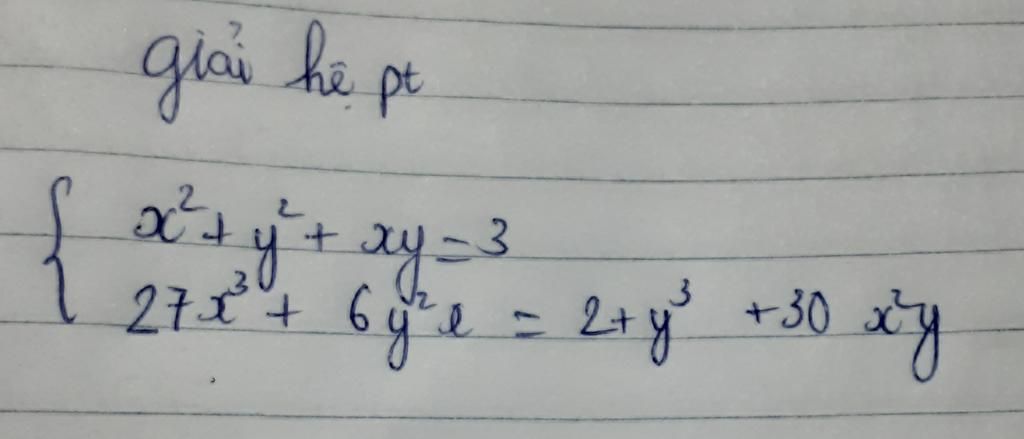 giải hệ pt
x² + y² + xy = 3
27x³ + 6y²x = 2 + y³ + 30 x²y